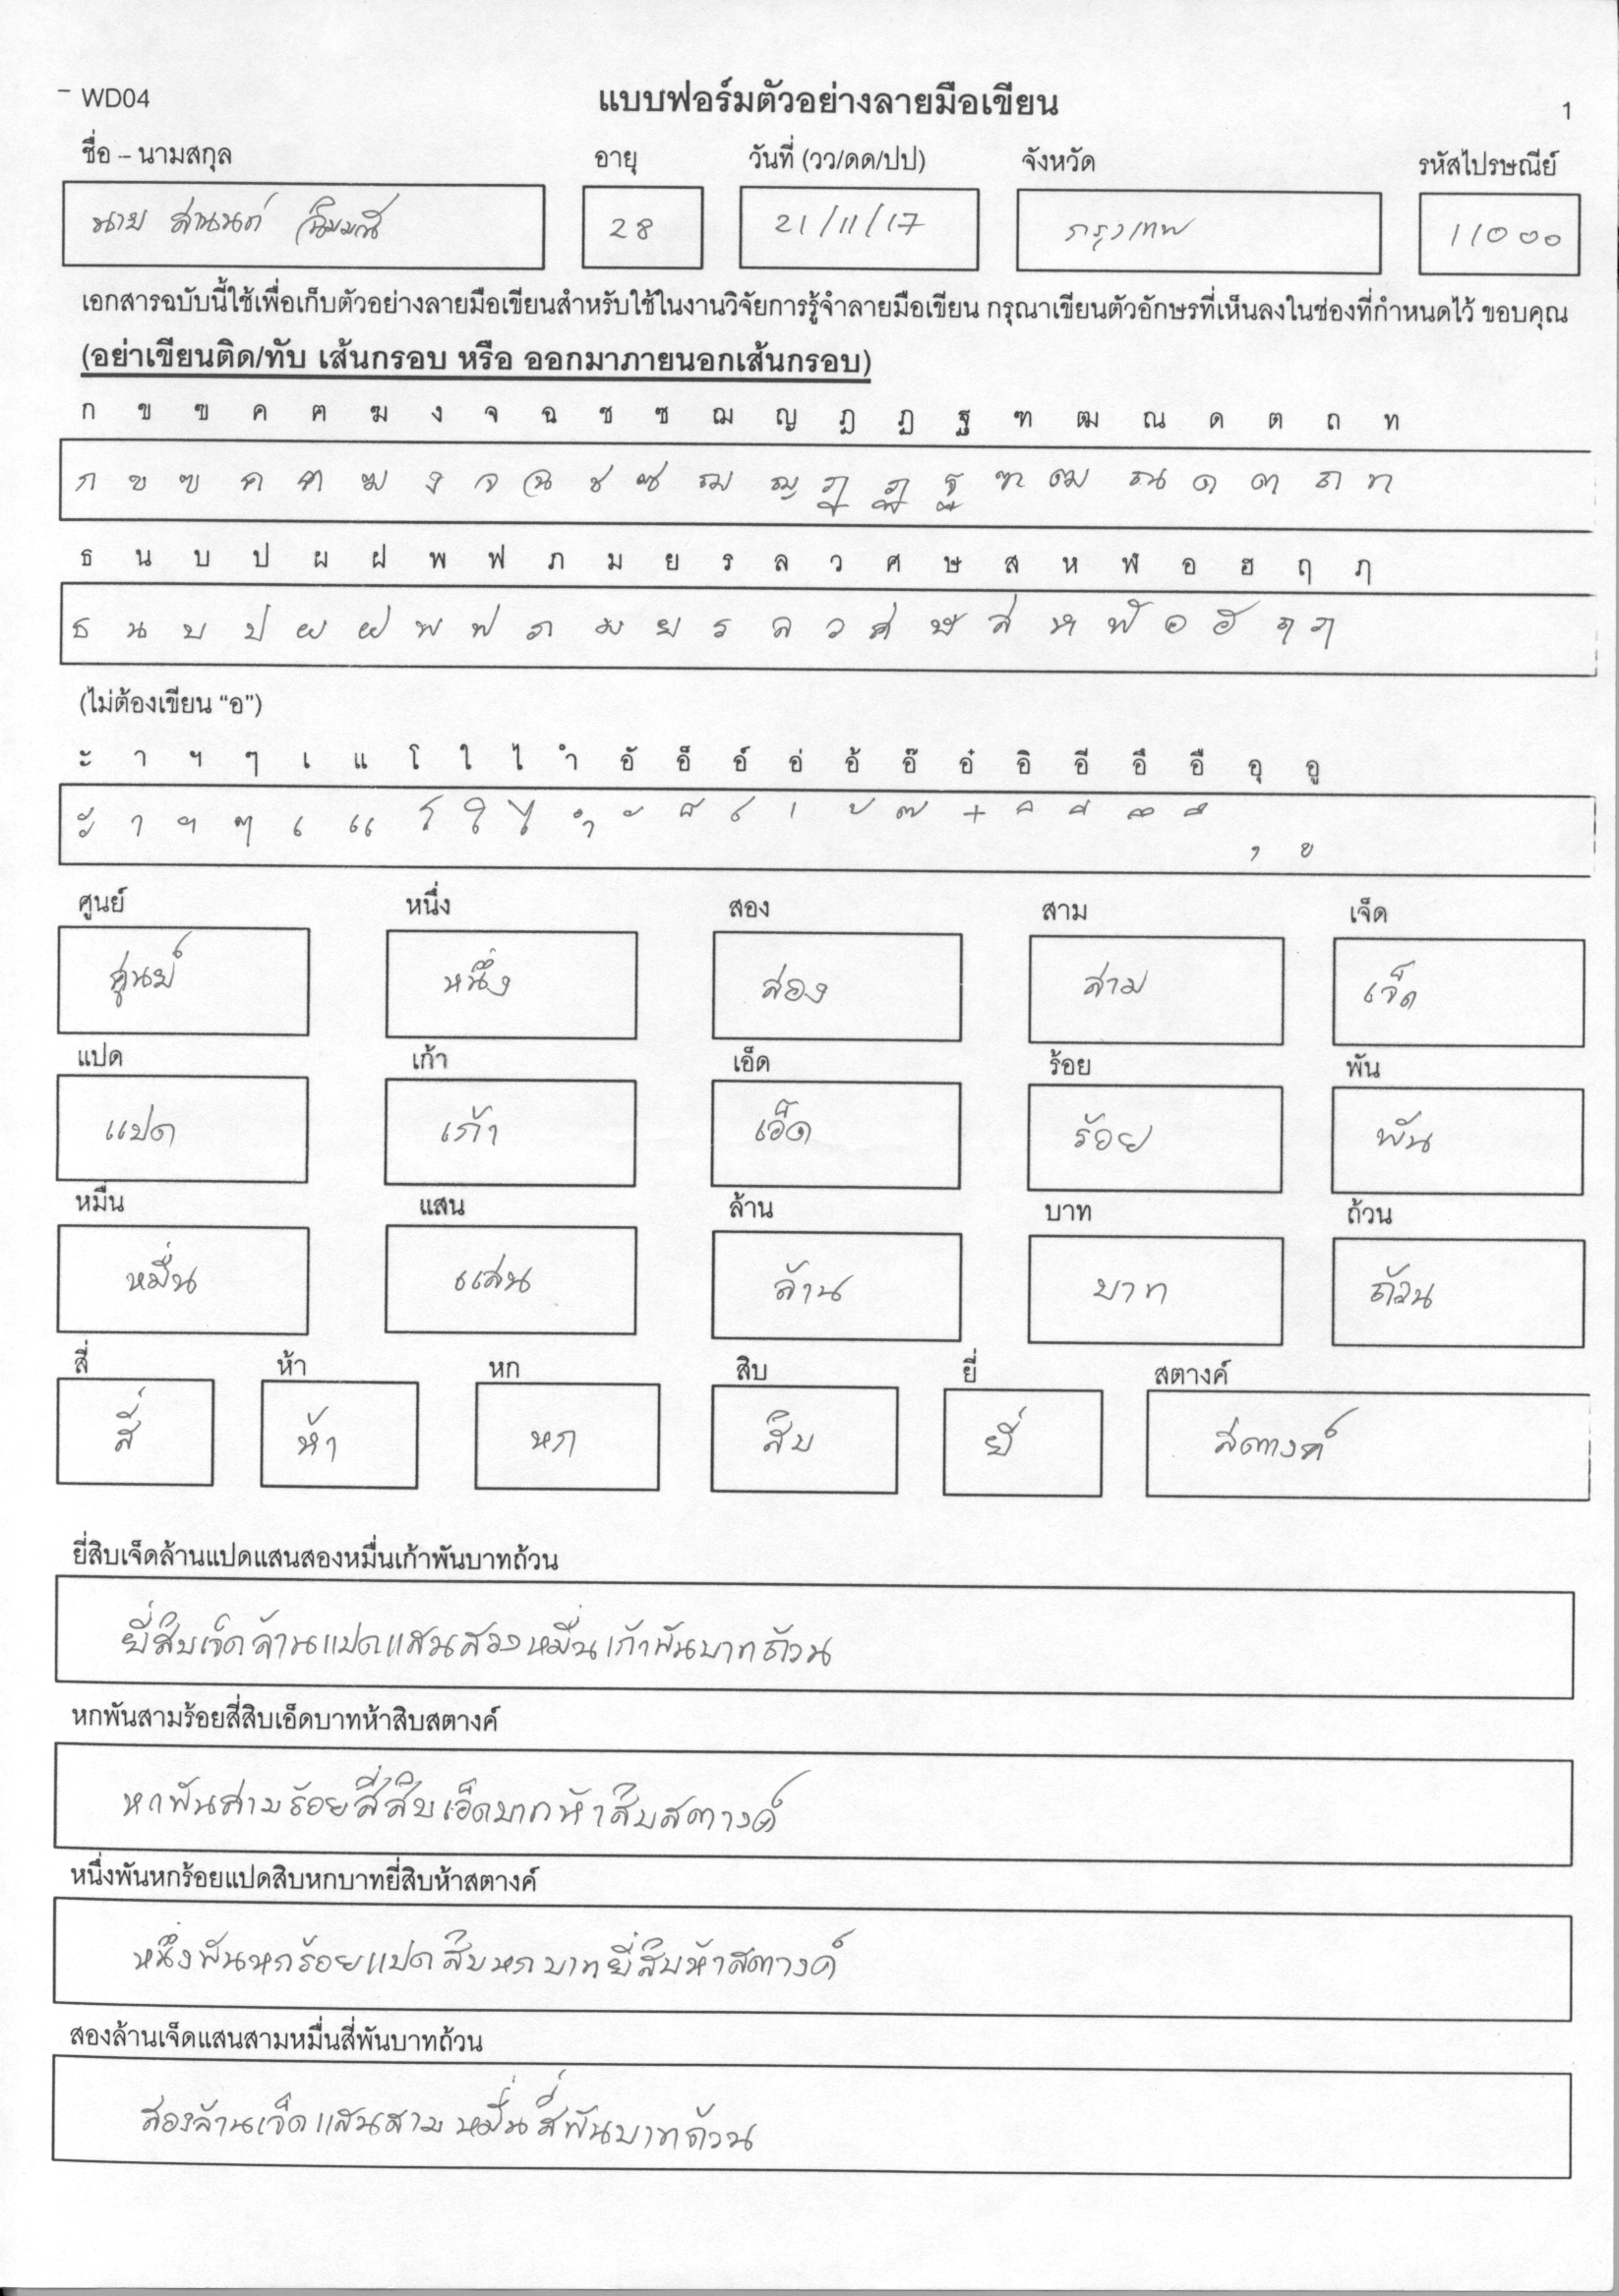 WD04 แบบฟอร์มตัวอย่างลายมือเขียน 1
ชื่อ – นามสกุล อายุ วันที่ (วว/ดด/ปป) จังหวัด รหัสไปรษณีย์
นาย 28 21/11/17 กรุงเทพ 11000
เอกสารฉบับนี้ใช้เพื่อเก็บตัวอย่างลายมือเขียนสำหรับใช้ในงานวิจัยการรู้จำลายมือเขียน กรุณาเขียนตัวอักษรที่เห็นลงในช่องที่กำหนดไว้ ขอบคุณ
(อย่าเขียนติด/ทับ เส้นกรอบ หรือ ออกมาภายนอกเส้นกรอบ)
ก ข ฃ ค ฅ ฆ ง จ ฉ ช ซ ฌ ญ ฎ ฏ ฐ ฑ ฒ ณ ด ต ถ ท
ก ข ฃ ค ฅ ฆ ง จ ฉ ช ซ ฌ ญ ฎ ฏ ฐ ฑ ฒ ณ ด ต ถ ท
ธ น บ ป ผ ฝ พ ฟ ภ ม ย ร ล ว ศ ษ ส ห ฬ อ ฮ ฤ ฦ
ธ น บ ป ผ ฝ พ ฟ ภ ม ย ร ล ว ศ ษ ส ห ฬ อ ฮ ฤ ฦ
(ไม่ต้องเขียน “อ”)
ะ า ฯ ๆ เ แ โ ใ ไ ำ อั อ็ อ์ อ่ อ้ อ๊ อ๋ อิ อี อึ อื อุ อู
ะ า ฯ ๆ เ แ โ ใ ไ ำ ั ็ ์ ่ ้ ๊ ๋ ิ ี ึ ื ุ ู
ศูนย์ หนึ่ง สอง สาม เจ็ด
ศูนย์ หนึ่ง สอง สาม เจ็ด
แปด เก้า เอ็ด ร้อย พัน
แปด เก้า เอ็ด ร้อย พัน
หมื่น แสน ล้าน บาท ถ้วน
หมื่น แสน ล้าน บาท ถ้วน
สี่ ห้า หก สิบ ยี่ สตางค์
สี่ ห้า หก สิบ ยี่ สตางค์
ยี่สิบเจ็ดล้านแปดแสนสองหมื่นเก้าพันบาทถ้วน
ยี่สิบเจ็ดล้านแปดแสนสองหมื่นเก้าพันบาทถ้วน
หกพันสามร้อยสี่สิบเอ็ดบาทห้าสิบสตางค์
หกพันสามร้อยสี่สิบเอ็ดบาทห้าสิบสตางค์
หนึ่งพันหกร้อยแปดสิบหกบาทยี่สิบห้าสตางค์
หนึ่งพันหกร้อยแปดสิบหกบาทยี่สิบห้าสตางค์
สองล้านเจ็ดแสนสามหมื่นสี่พันบาทถ้วน
สองล้านเจ็ดแสนสามหมื่นสี่พันบาทถ้วน